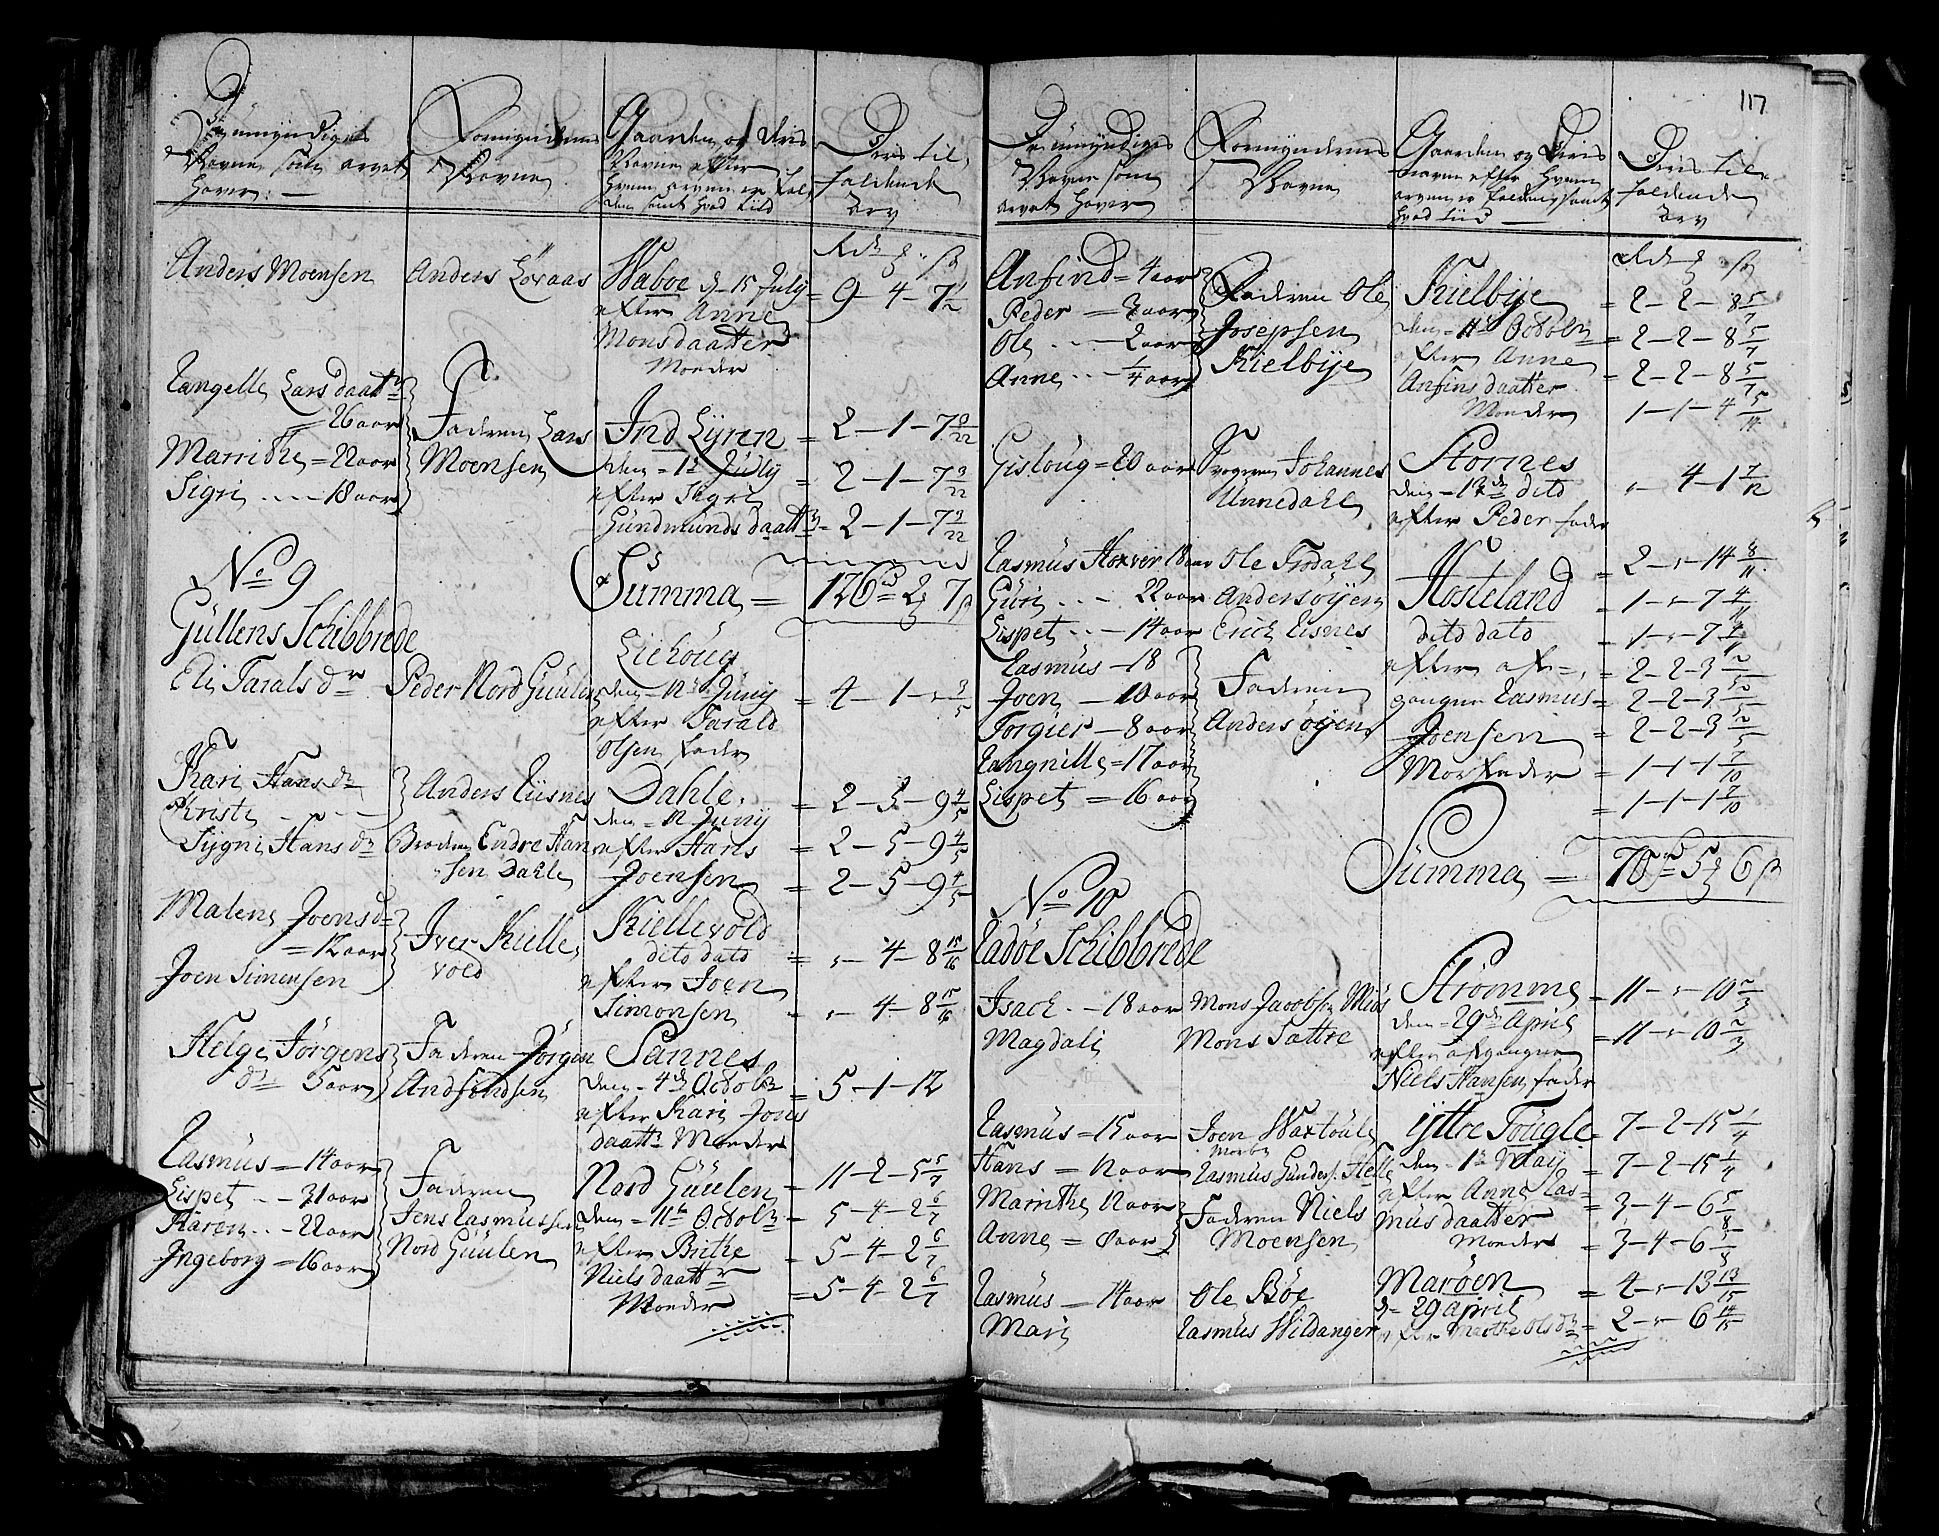 117
De umyndiges
Navne som arvet
haver:
Formyndernes
Navne
Gaarden og deris
Navne efter
hvem arven er fal
den samt hvad tiid
Deris til
faldende
Arv
Rdr ß
Anders Moensen
Anders Løvaas
Waboe d. 15 July
efter Anne
Monsdaatter
Moeder
= 9 - 4 - 7 1/2
Langelle Larsdaatr
= 26 aar
Marrithe = 22 aar
Sigri - 18 aar
Faderen Lars
Moensen
Ind Lÿren
den 1te July
efter Sigri
Gundmundsdaattr
= 2 - 1 - 7 9/22
= 2 - 1 - 7 9/22
= 2 - 1 - 7 9/22
No 9
Summa = 126 2 7 ß
Güllens Schibbrede
Eli Taralsdr
Peder Nord Güülen
Liehoug
den 12te Junij
efter Tarald
Olsen fader
= 4 - 1 - 3/5
Kari Hansdr
Kristi
Sygni Hansdr
Anders Eisnes
Broderen Endre Han
sen Dahle
Dahle
den 12 Junij
efter Hans
Joensen
= 2 - 5 - 9 4/5
= 2 - 5 - 9 4/5
= 2 - 5 - 9 4/5
Malene Joensdr
= 12 aar
Joen Simensen
Iver Kielle
vold
Kiellevold
dito dato
efter Joen
Simonsen
= - 4 - 8 15/16
- 4 - 8 15/16
Helge Jørgens
dr 5 aar
Faderen Jørgen
Andfindsen
Sannes
den 4de Octobr
efter Kari Joens
daattr Moeder
= 5 - 1 - 12
Rasmus = 14 aar
Lispet - 31 aar
Karen - 22 aar
Ingeborg = 16 aar
Faderen
Jens Rasmussen
Nord Güülen
Nord Güülen
den 11te Octobr
efter Brithe
Nielsdaattr
Moeder
= 11 - 2 - 5 5/7
5 - 4 - 2 6/7
= 5 - 4 - 2 6/7
= 5 - 4 - 2 6/7
De umyndiges
Navne som
arvet haver
Formyndernes
Navne
Gaarden og deris
navne efter hvem
arven er falden samt
hvad tiid
Deris til
faldende
Arv
Rdr ß
Anfind = 4 aar
Peder = 3 aar
Ole - 2 aar
Anne - 1/4 aar
Faderen Ole
Josepsen
Kielbye
Kielbye
den 11te Octobr
efter Anne
Anfinsdaatter
Moeder
= 2 - 2 - 8 5/7
= 2 - 2 - 8 5/7
= 2 - 2 - 8 5/7
1 - 1 - 4 5/14
Gisloug = 20 aar
Johannes
Unnedahl
Stornes
den 12de dito
efter Peder fader
4 - 1 7/12
Rasmus Hoxver 18 aar
Güri - 22 aar
Lispet - 14 aar
Rasmus - 18
Joen - 10 aar
Torgier - 8 aar
Rangnille = 17 aar
Lispet = 16 aar
Ole Frodahl
Anders Øyen
Erich Eisnes
Faderen
Anders Øyen
Hosteland
dito dato
efter af
gangne Rasmus
Joensen
Morfader
= 2 - 14 8/11
= 1 - 7 4/11
= 1 - 7 4/11
= 2 - 2 - 3 2/5
= 2 - 2 - 3 2/5
= 2 - 2 - 3 2/5
= 1 - 1 - 1 7/10
= 1 - 1 - 1 7/10
Summa = 70 5 6 ß
No 10
Radöe Schibbrede
Isach - 18 aar
Magdali
Mons Jacobsen Müs
Mons Sættre
Strømme
den 29de April
efter afgangne
Niels Hansen fader
= 11 - 10 2/3
= 11 - 10 2/3
Rasmus = 15 aar
Hans = 12 aar
Marrithe 12 aar
Anne = 8 aar
Joen Waxtoule
Morbr
Rasmus Gunders. Helle
Faderen Niels
Moensen
Ÿttre Fougle
den 1te Maij
efter Anne Ras=
musdaatter
Moeder
= 7 - 2 - 15 1/4
= 7 - 2 - 15 1/4
= 3 - 4 - 6 5/8
= 3 - 4 - 6 5/8
Rasmus = 14 aar
Mari
Ole Bøe
Rasmus Wildanger
Marøen
d. 29 april
efter Marthe Olsdr
= 4 - 13 13/15
= 2 - 6 14/15